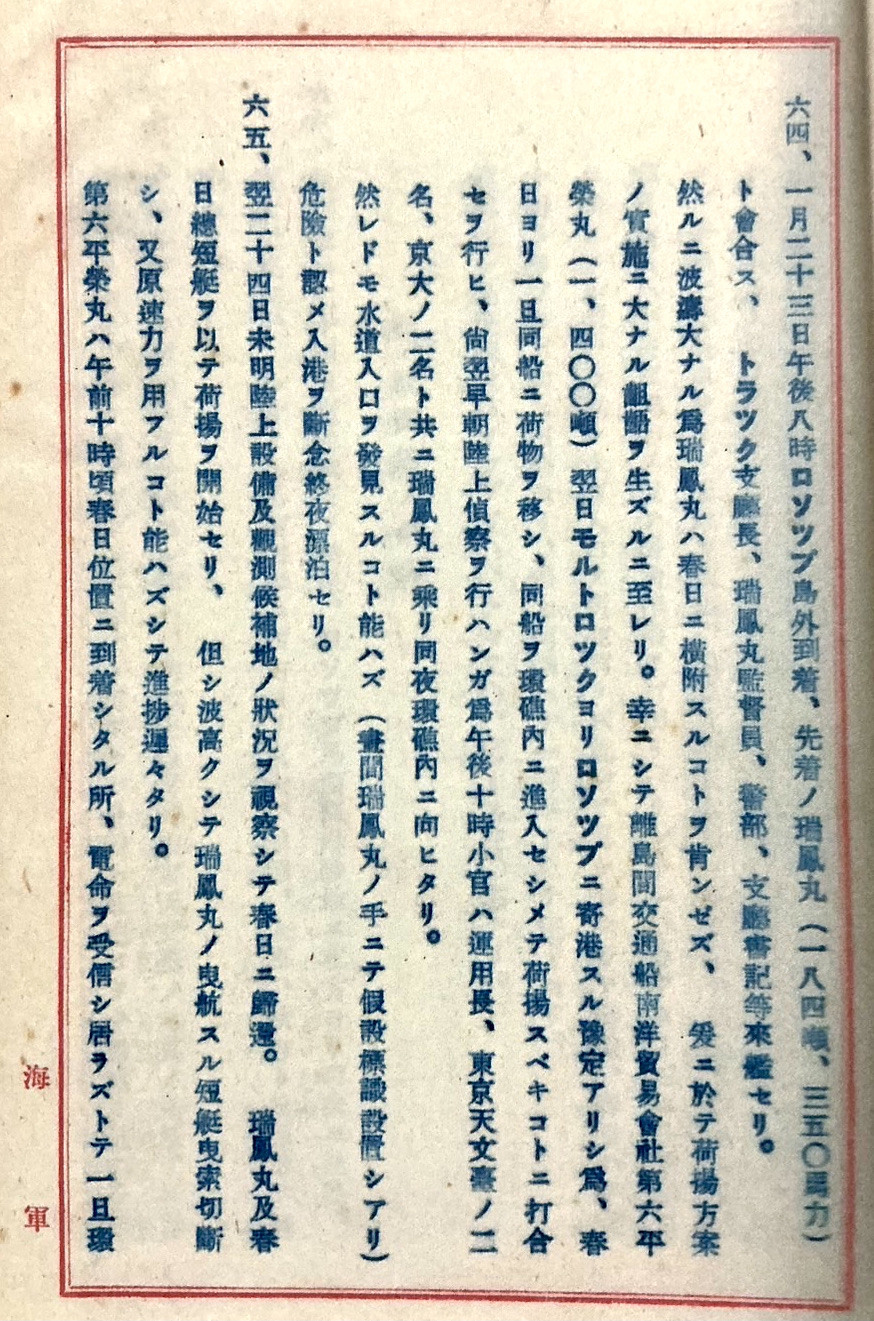 六四、一月二十三日午後八時ロソツプ島外到着、先着ノ瑞鳳丸（一八四噸、三五〇馬力）
ト會合ス、トラツク支廳長、瑞鳳丸監督員、警部、支廳書記等來艦セリ。
然ルニ波濤大ナル爲瑞鳳丸ハ春日ニ横附スルコトヲ肯ンゼズ、爰ニ於テ荷揚方案
ノ實施ニ大ナル齟齬ヲ生ズルニ至レリ。幸ニシテ離島間交通船南洋貿易會社第六平
榮丸（一、四〇〇噸）翌日モルトロツクヨリロソツプニ寄港スル豫定アリシ爲、春
日ヨリ一旦同船ニ荷物ヲ移シ、同船ヲ環礁內ニ進入セシメテ荷揚スベキコトニ打合
セヲ行ヒ、尙翌早朝陸上偵察ヲ行ハンガ爲午後十時小官ハ運用長、東京天文臺ノ二
名、京大ノ二名ト共ニ瑞鳳丸ニ乘リ同夜環礁內ニ向ヒタリ。
然レドモ水道入口ヲ發見スルコト能ハズ（晝間瑞鳳丸ノ手ニテ假設標識設置シアリ）
危險ト認メ入港ヲ斷念終夜漂泊セリ。
六五、翌二十四日未明陸上設備及觀測候補地ノ狀況ヲ視察シテ春日ニ歸還。瑞鳳丸及春
日總短艇ヲ以テ荷揚ヲ開始セリ、但シ波高クシテ瑞鳳丸ノ曳航スル短艇曳索切斷
シ、又原速力ヲ用フルコト能ハズシテ進捗遲々タリ。
第六平榮丸ハ午前十時頃春日位置ニ到着シタル所、電命ヲ受信シ居ラズトテ一旦環
海軍